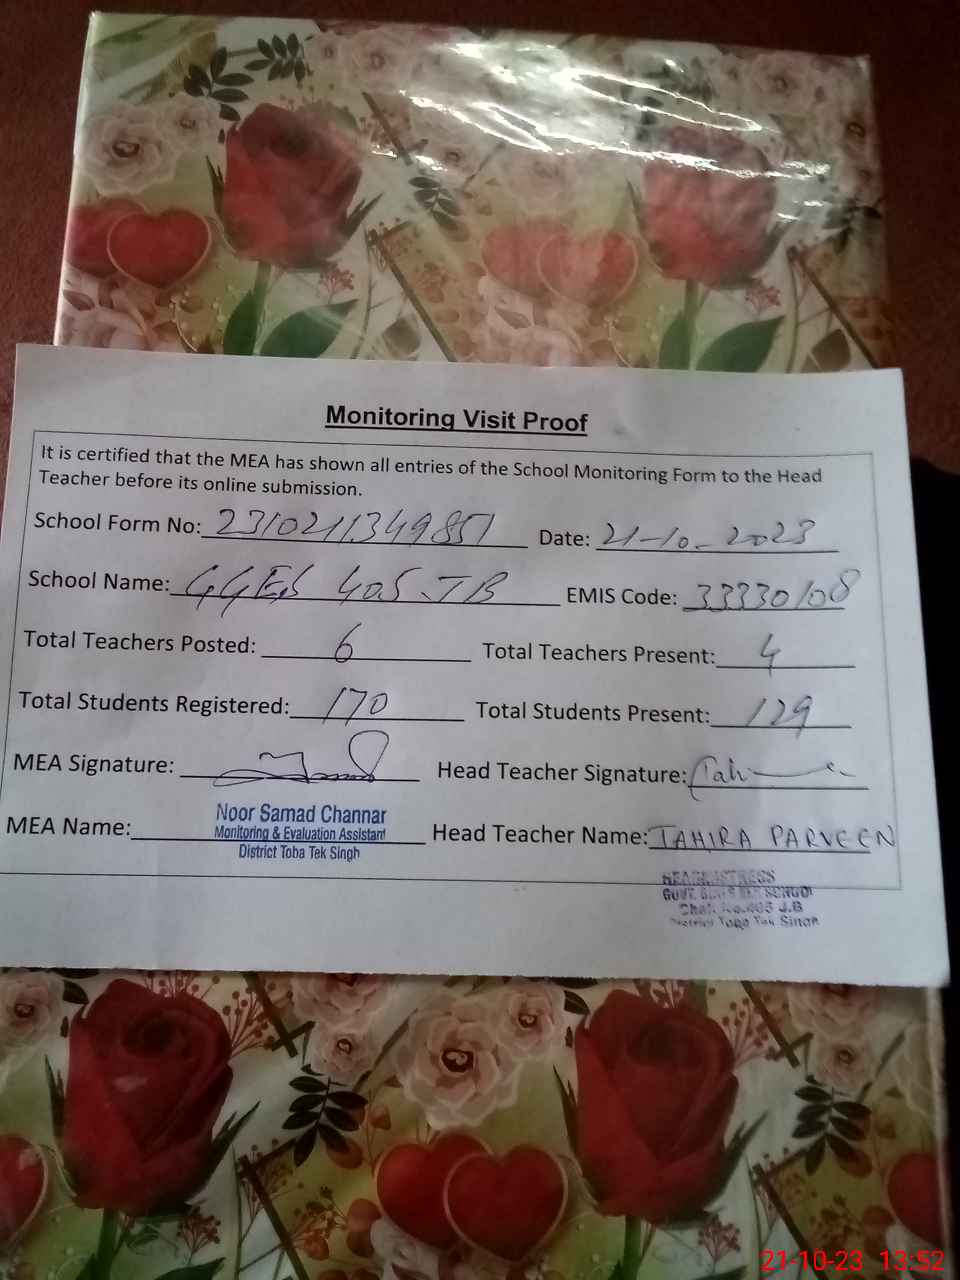 Monitoring Visit Proof
It is certified that the MEA has shown all entries of the School Monitoring Form to the Head
Teacher before its online submission.
School Form No: 2310211349851 Date: 21-10-2023
School Name: GGES 405 JB EMIS Code: 33330108
Total Teachers Posted: 6 Total Teachers Present: 4
Total Students Registered: 170 Total Students Present: 129
MEA Signature: Head Teacher Signature:
MEA Name: Noor Samad Channar Head Teacher Name: TAHIRA PARVEEN
Monitoring & Evaluation Assistant
District Toba Tek Singh
HEADMISTRESS
GOVT. GIRLS SCHOOL
Chak No.405 J.B
District Toba Tek Singh
21-10-23 13:52